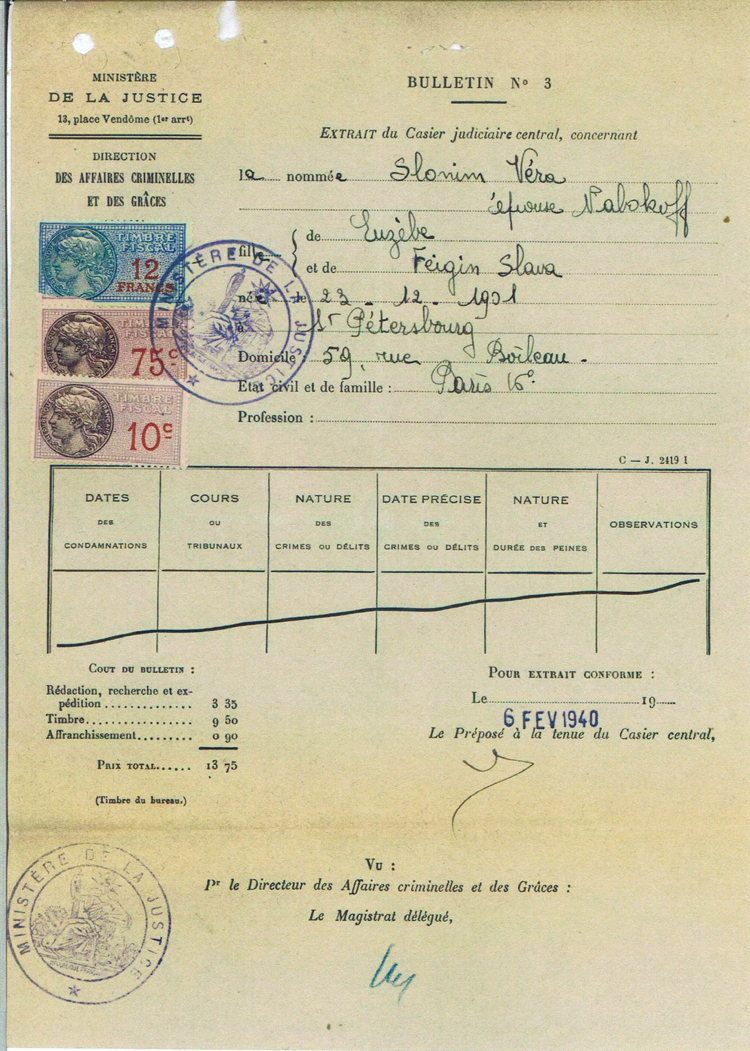 MINISTÈRE
DE LA JUSTICE
13, place Vendôme (1er arrt)
DIRECTION
DES AFFAIRES CRIMINELLES
ET DES GRÂCES
BULLETIN No 3
EXTRAIT du Casier judiciaire central, concernant
la nommée Slonim Véra
épouse Nabokoff
fille de Euzèbe
et de Feigin Slava
née le 23 - 12 - 1901
à St Pétersbourg
Domicile : 59, rue Boileau -
Etat civil et de famille : Paris 16e
Profession :
TIMBRE
FISCAL
12
FRANCS
TIMBRE
FISCAL
75c
TIMBRE
FISCAL
10c
MINISTÈRE DE LA JUSTICE
C — J. 2419 1
DATES DES CONDAMNATIONS
COURS OU TRIBUNAUX
NATURE DES CRIMES OU DÉLITS
DATE PRÉCISE DES CRIMES OU DÉLITS
NATURE ET DURÉE DES PEINES
OBSERVATIONS
COUT DU BULLETIN :
Rédaction, recherche et ex-
pédition .............. 3 35
Timbre................ 9 50
Affranchissement......... 0 90
PRIX TOTAL...... 13 75
(Timbre du bureau.)
POUR EXTRAIT CONFORME :
Le 19
6 FEV 1940
Le Préposé à la tenue du Casier central,
VU :
Pr le Directeur des Affaires criminelles et des Grâces :
Le Magistrat délégué,
MINISTÈRE DE LA JUSTICE